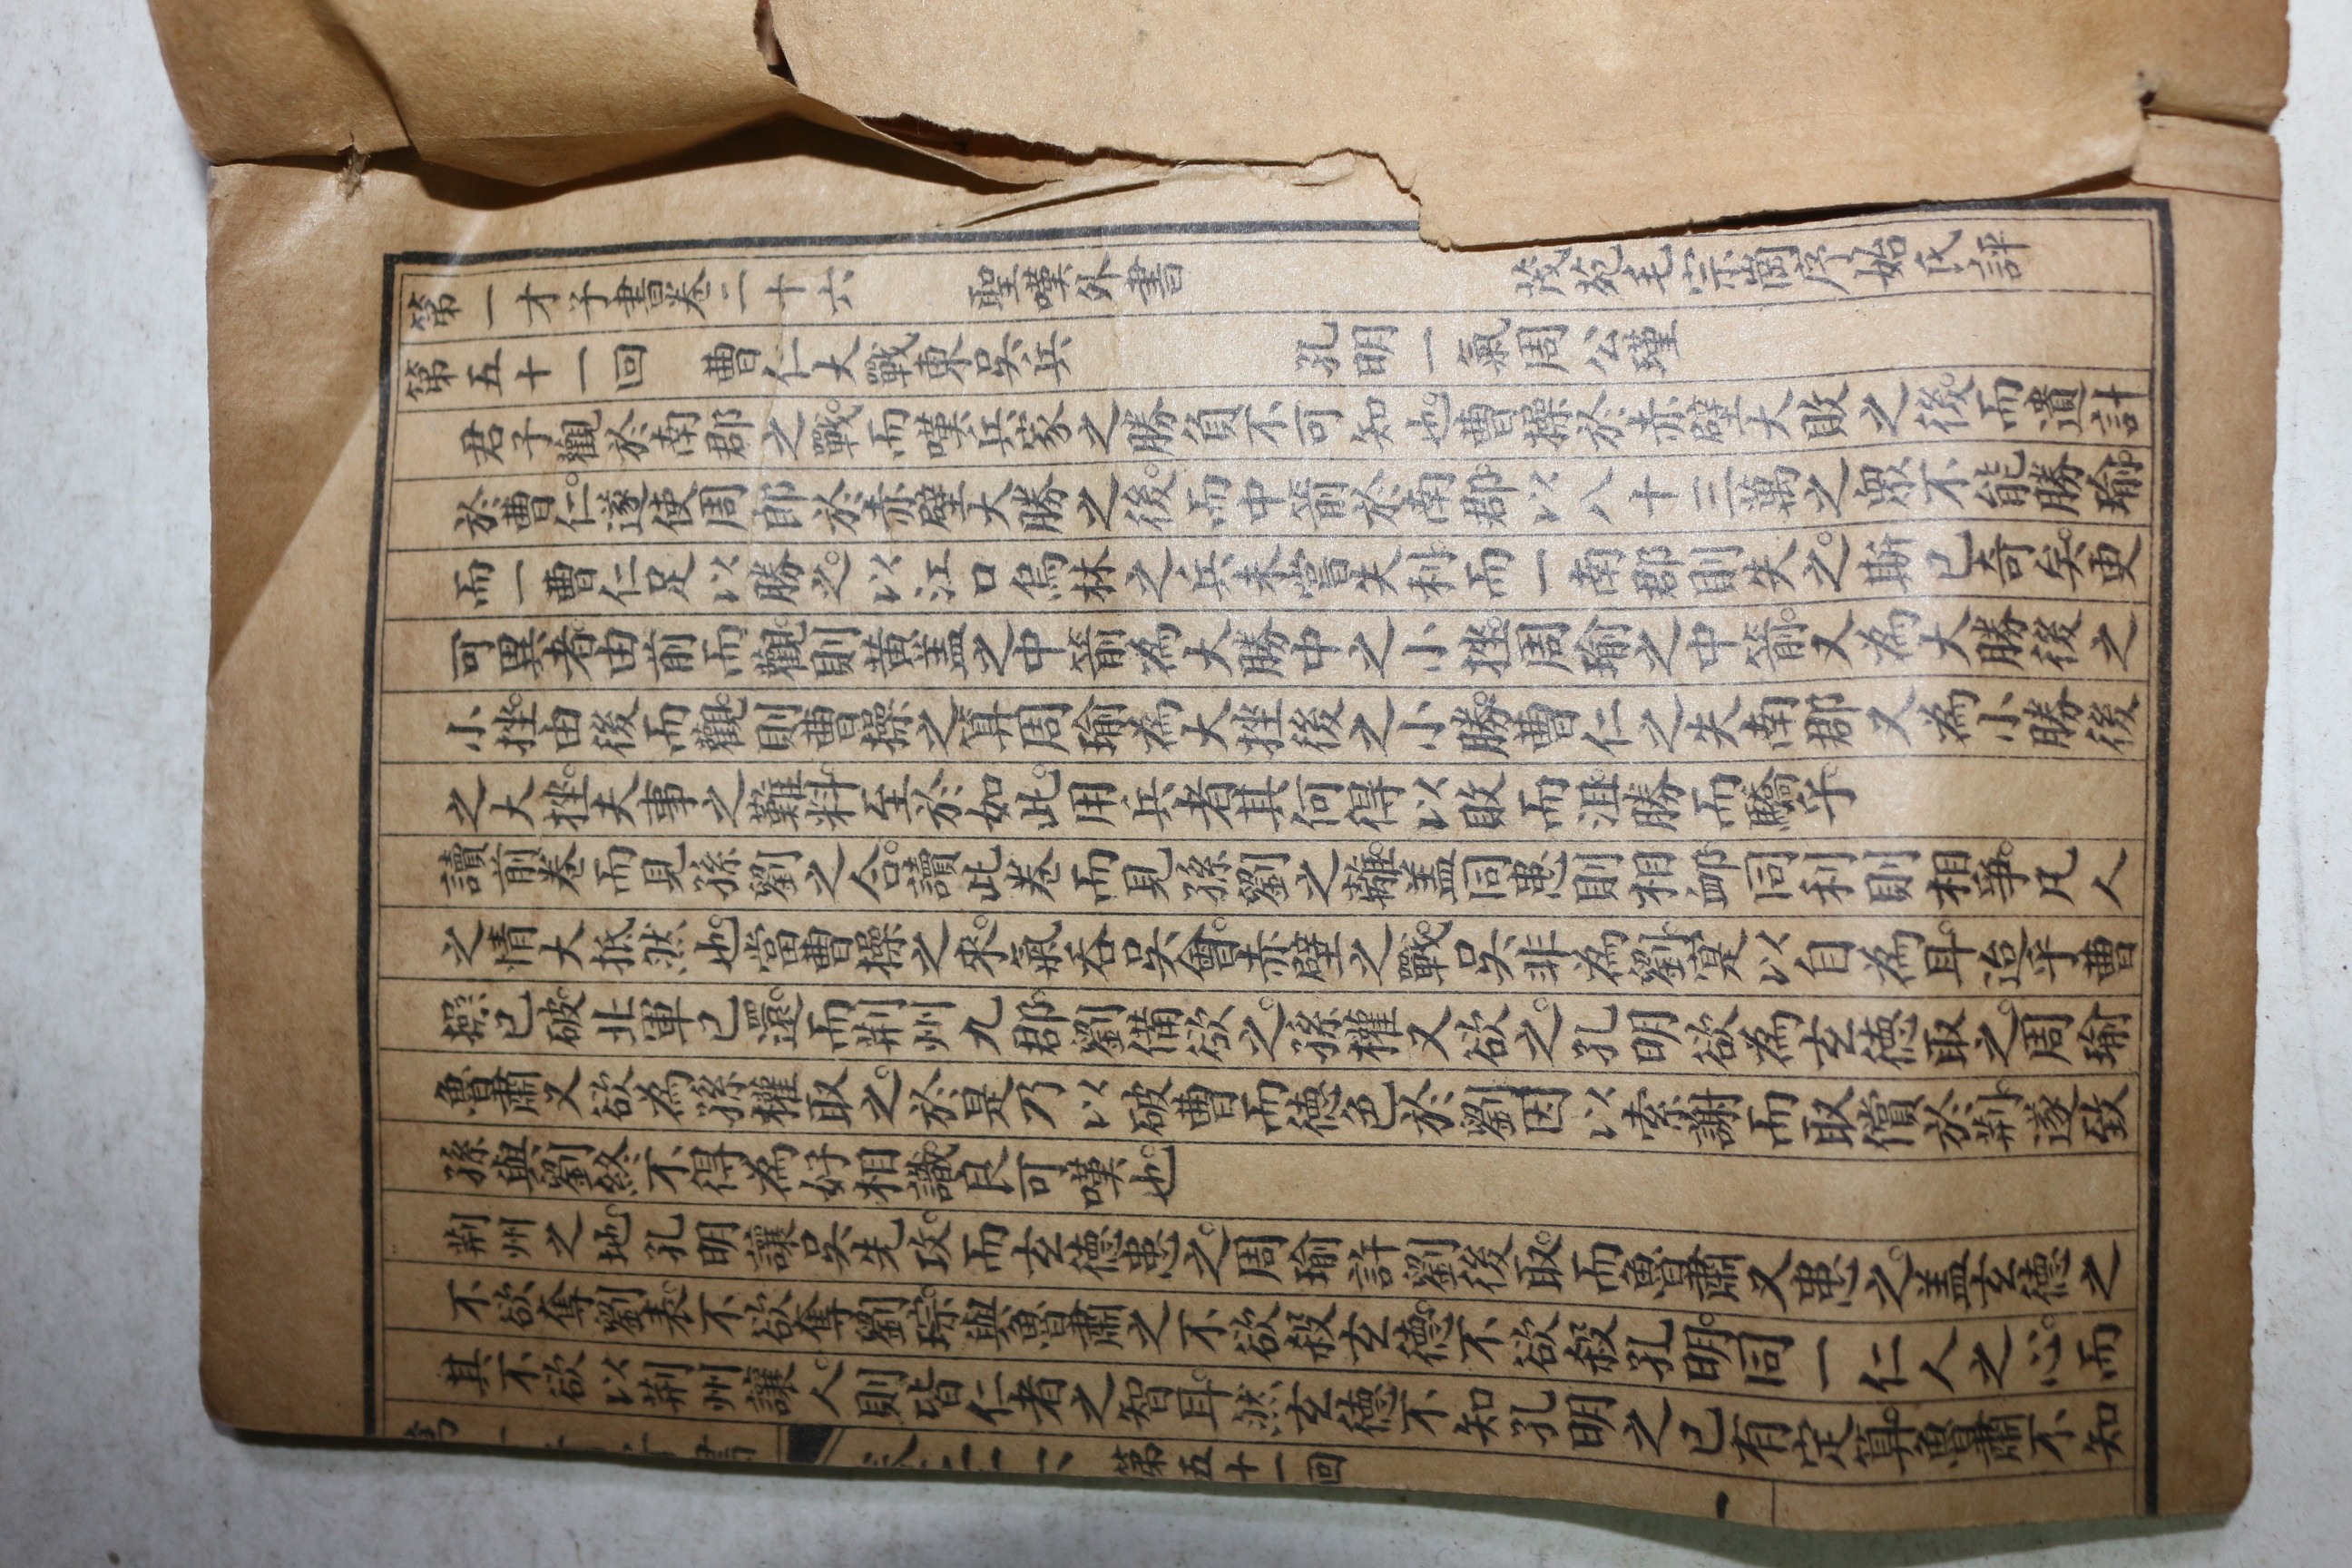 第一才子書卷二十六 聖嘆外書 茂苑毛宗崗序始氏評
第五十一回 曹仁大戰東吳兵 孔明一氣周公瑾
君子觀於南郡之戰。而嘆兵家之勝負不可知也。曹操於赤壁大敗之後。而遺計
於曹仁。遂使周郎於赤壁大勝之後。而中箭於南郡。以八十三萬之衆不能勝瑜。
而一曹仁足以勝之。以江口烏林之兵未嘗失利。而一南郡則失之。斯已奇矣。更
可異者。由前而觀。則黃蓋之中箭為大勝中之小挫。周瑜之中箭。又為大勝後之
小挫。由後而觀。則曹操之算周瑜為大挫後之小勝。曹仁之失南郡又為小勝後
之大挫。夫事之難料。至於如此。用兵者其何得以敗而沮。勝而驕乎。
讀前卷而見孫劉之合。讀此卷而見孫劉之離。蓋同患則相卹。同利則相爭。凡人
之情大抵然也。當曹操之來。氣吞吳會。赤壁之戰。吳非為劉。寔以自為耳。迨乎曹
操已破。北軍已還。而荆州九郡。劉備欲之。孫權又欲之。孔明欲為玄德取之。周瑜
魯肅又欲為孫權取之。於是乃以破曹而德色於劉。因以索謝而取償於荆。遂致
孫與劉終不得為好相識。良可嘆也。
荆州之地。孔明讓吳先攻。而玄德患之。周瑜許劉後取。而魯肅又患之。蓋玄德之
不欲奪劉表。不欲奪劉琮。與魯肅之不欲殺玄德。不欲殺孔明。同一仁人之心。而
其不欲以荆州讓人。則皆仁者之智耳。然玄德不知孔明之已有定算。魯肅不知
第五十一回
一